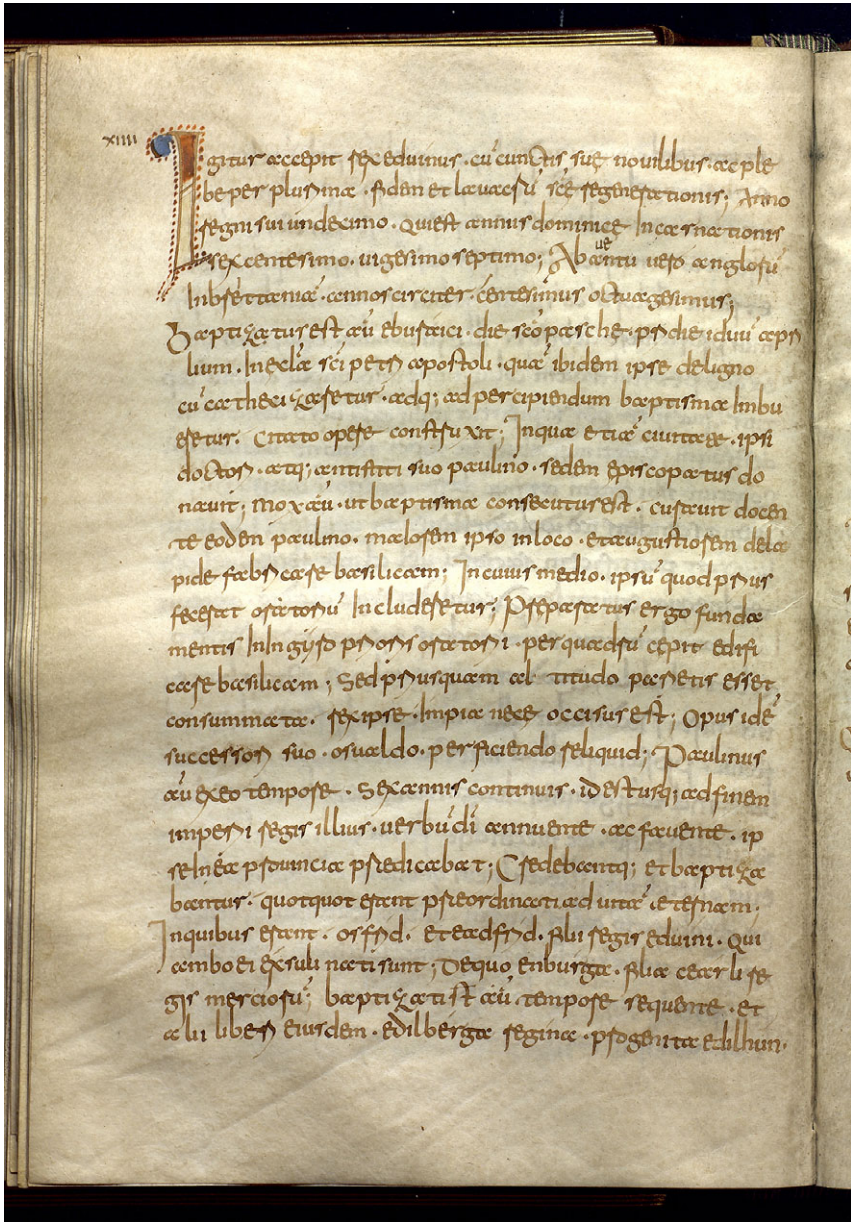 xiiii
Igitur accepit rex eduinus · cū cunctis suę nouilibus · ac ple
be per plurima · fidem et lauacrū scę regenerationis; Anno
regni sui undecimo · qui est annus dominicę Incarnationis
sexcentesimo · uigesimo septimo; Ab aduentū uero anglorū
In brettaniā · annos circiter · centesimus octuagesimus;
Baptizatus est aū eburaici · die sc̄o paschę · prdie iduū apr
lium · In ecl̄a sc̄i petri apostoli · quā ibidem ipse de ligno
cū cathecizaretur · adq; ad percipiendum baptisma Imbu
eretur · citato opere construxit; In qua etiā ciuitate · ipsi
doctori · atq; antistiti suo paulino · sedem episcopatus do
nauit; mox aū · ut baptisma consecutus est · curauit docen
te eodem paulino · maiorem ipso in loco · et augustiorem de la
pide fabricare basilicam; In cuius medio · ipsū quod prius
fecerat oratoriū Includeretur; Preparatus ergo funda
mentis In In gyro prioris oratorii · per quadrū cepit edifi
care basilicam; Sed priusquam al titudo parietis esset
consummata · rex ipse · Impia nece occisus est; Opus idē
successori suo · osualdo · perficiendo reliquid; Paulinus
aū ex eo tempore · sex annis continuis · id est usq; ad finem
imperii regis illius · uerbū dī annuente · ac fauente · ip
se In ea prouincia predicabat; Credebantq; et baptiza
bantur · quotquot erant preordinati ad uitā · eternam ·
In quibus erant · osfrid · et eadfrid · filii regis eduini · qui
ambo ei exsuli nati sunt; De quo enburga · filia cearli re
gis merciorū; baptizati st̄ aū tempore sequente · et
alii liberi eiusdem · edilberga regina · progenita edilhun·